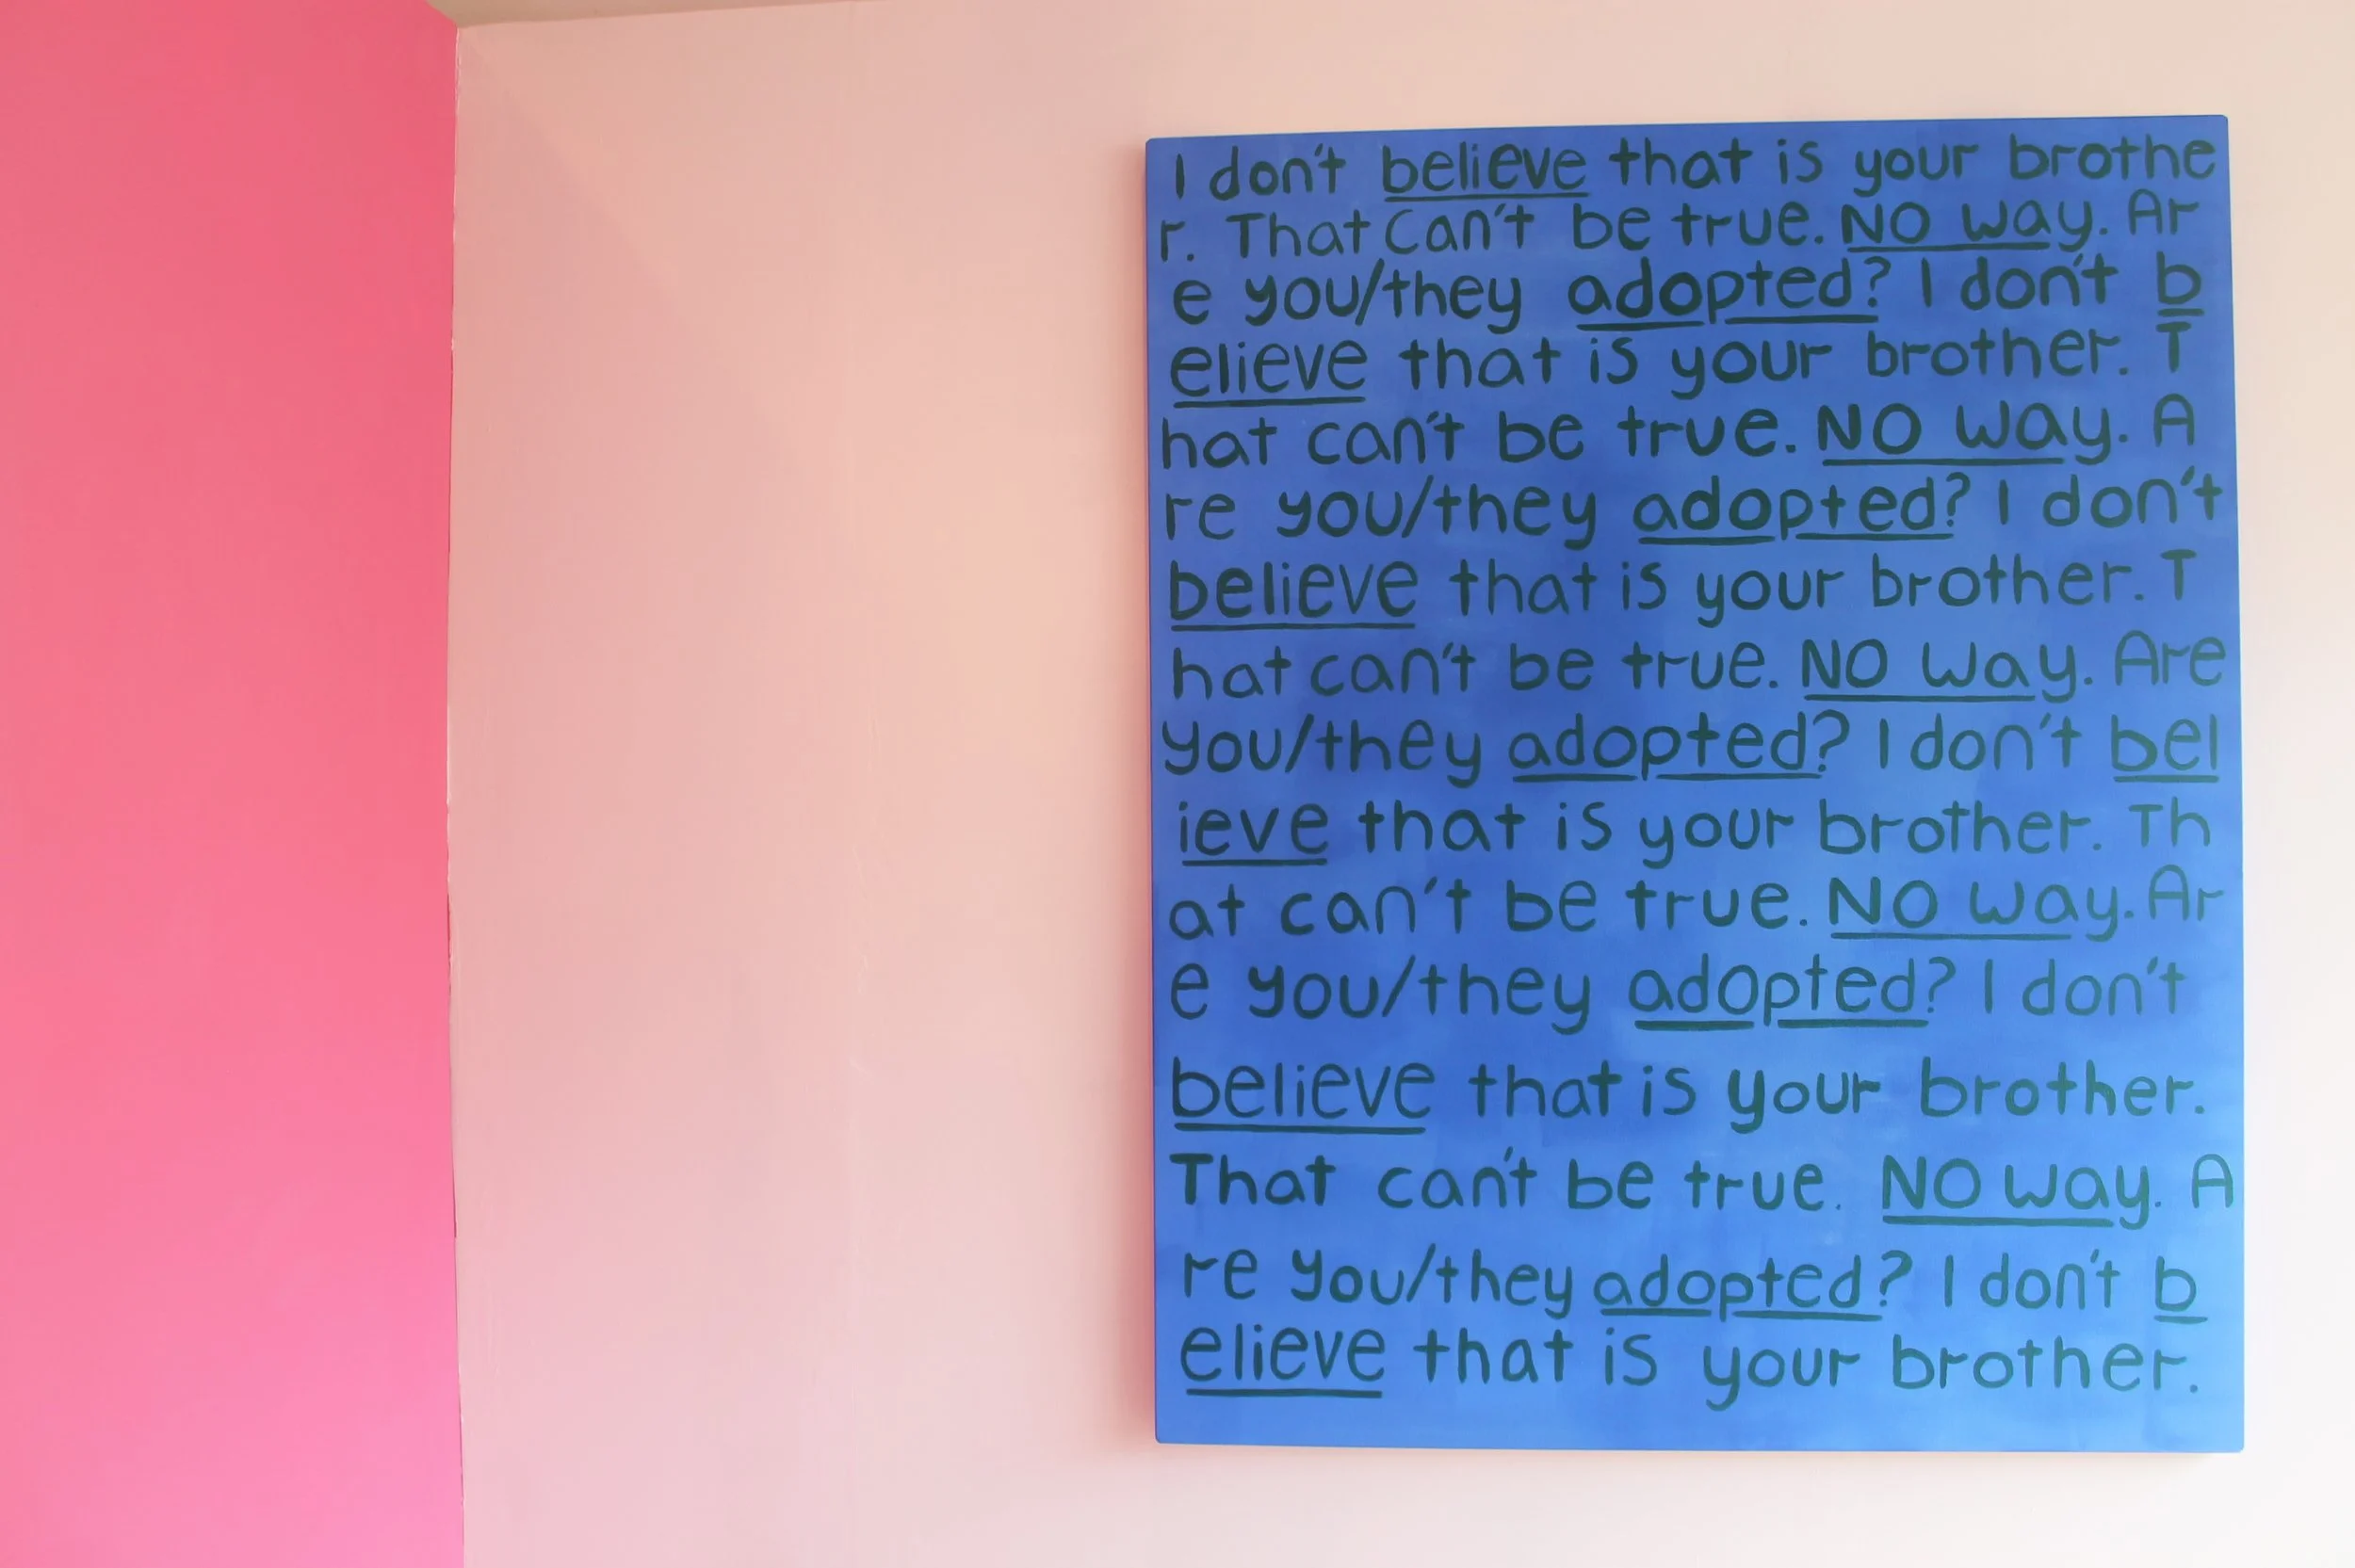 I don't believe that is your brothe
r. That can't be true. NO way. Ar
e you/they adopted? I don't b
elieve that is your brother. T
hat can't be true. NO way. A
re you/they adopted? I don't
believe that is your brother. T
hat can't be true. NO way. Are
you/they adopted? I don't bel
ieve that is your brother. Th
at can't be true. NO way. Ar
e you/they adopted? I don't
believe that is your brother.
That can't be true. NO way. A
re you/they adopted? I don't b
elieve that is your brother.